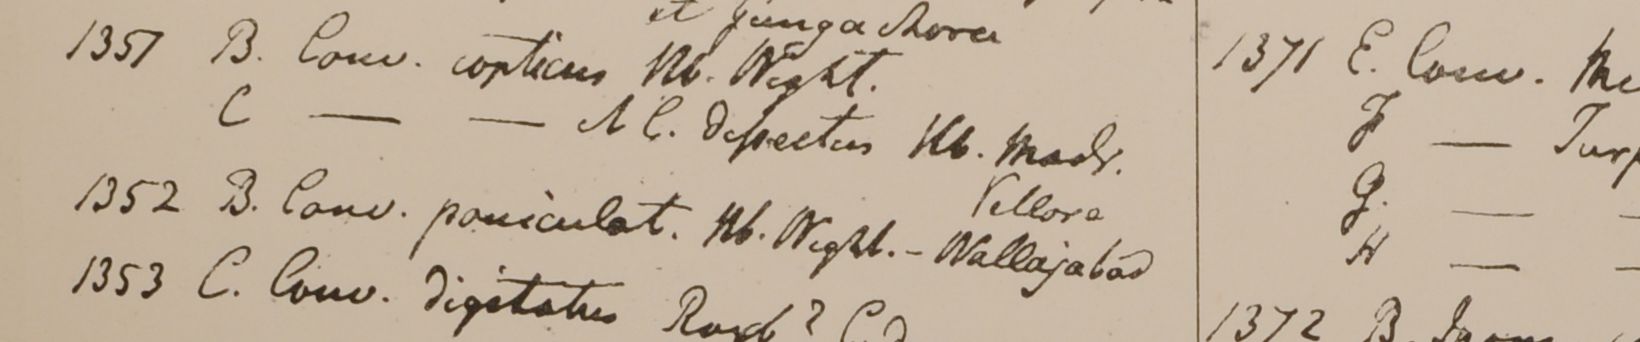 et Junga
1351 B. Conv. copticus Hb. Wight.
C — — & C. dissectus Hb. Madr.
Vellore
1352 B. Conv. paniculat. Hb. Wight. - Wallajabad
1353 C. Conv. digitatus Roxb?
1371 E. Conv.
F —
G. — —
H — —
1372 B.